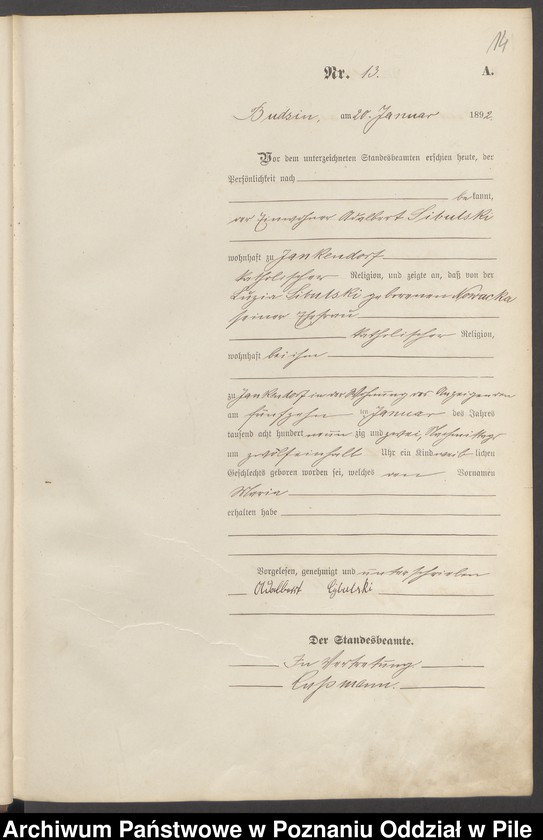 14
Nr. 13. A.
Budsin, am 20. Januar 1892.
Vor dem unterzeichneten Standesbeamten erschien heute, der
Persönlichkeit nach
bekannt,
der Einwohner Adalbert Sibulski
wohnhaft zu Jankendorf
katholischer Religion, und zeigte an, daß von der
Luzia Sibulski geborenen Nowacka
seiner Ehefrau
katholischer Religion,
wohnhaft bei ihm
zu Jankendorf in der Wohnung des Anzeigenden
am fünfzehn ten Januar des Jahres
tausend acht hundert neunzig und zwei, Nachmittags
um zwölfeinhalb Uhr ein Kind weiblichen
Geschlechts geboren worden sei, welches den Vornamen
Maria
erhalten habe
Vorgelesen, genehmigt und unterschrieben
Adalbert Cybulski
Der Standesbeamte.
In Vertretung
Archiwum Państwowe w Poznaniu Oddział w Pile